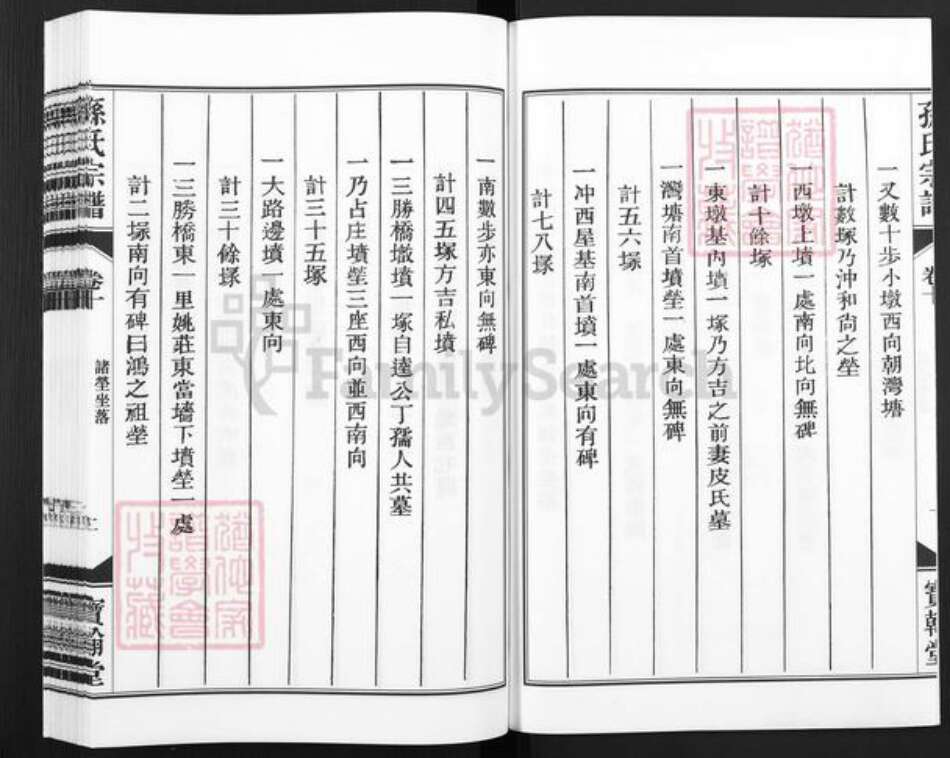 孫氏宗譜
卷十
寶翰堂
一又數十步小墩西向朝灣塘
計數塚乃沖和尙之塋
一西墩上墳一處南向北向無碑
計十餘塚
一東墩基內墳一塚乃方吉之前妻皮氏墓
一灣塘南首墳塋一處東向無碑
計五六塚
一冲西屋基南首墳一處東向有碑
計七八塚
一南數步亦東向無碑
計四五塚方吉私墳
一三勝橋墩墳一塚自達公丁孺人共墓
一乃占庄墳塋三座西向並西南向
計三十五塚
一大路邊墳一處東向
計三十餘塚
一三勝橋東一里姚莊東當墻下墳塋一處
計二塚南向有碑曰鴻之祖塋
孫氏宗譜
卷十
諸塋坐落
二
寶翰堂
FamilySearch